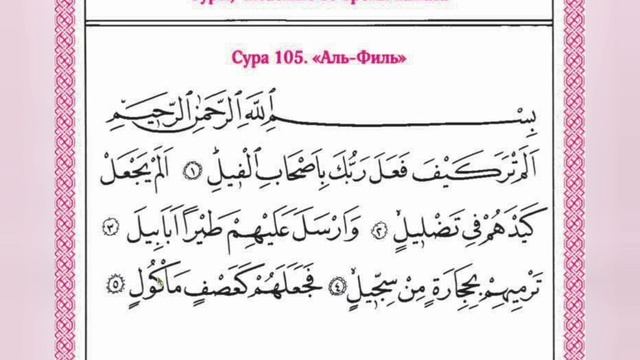 Сура 105. «Аль-Филь»
بِسْمِ اللَّهِ الرَّحْمَٰنِ الرَّحِيمِ
اَلَمْ تَرَ كَيْفَ فَعَلَ رَبُّكَ بِاَصْحَابِ الْفٖيلِ ﴿١﴾ اَلَمْ يَجْعَلْ
كَيْدَهُمْ فٖى تَضْلٖيلٍ ﴿٢﴾ وَاَرْسَلَ عَلَيْهِمْ طَيْرًا اَبَابٖيلَ ﴿٣﴾
تَرْمٖيهِمْ بِحِجَارَةٍ مِنْ سِجّٖيلٍ ﴿٤﴾ فَجَعَلَهُمْ كَعَصْفٍ مَأْكُولٍ ﴿٥﴾